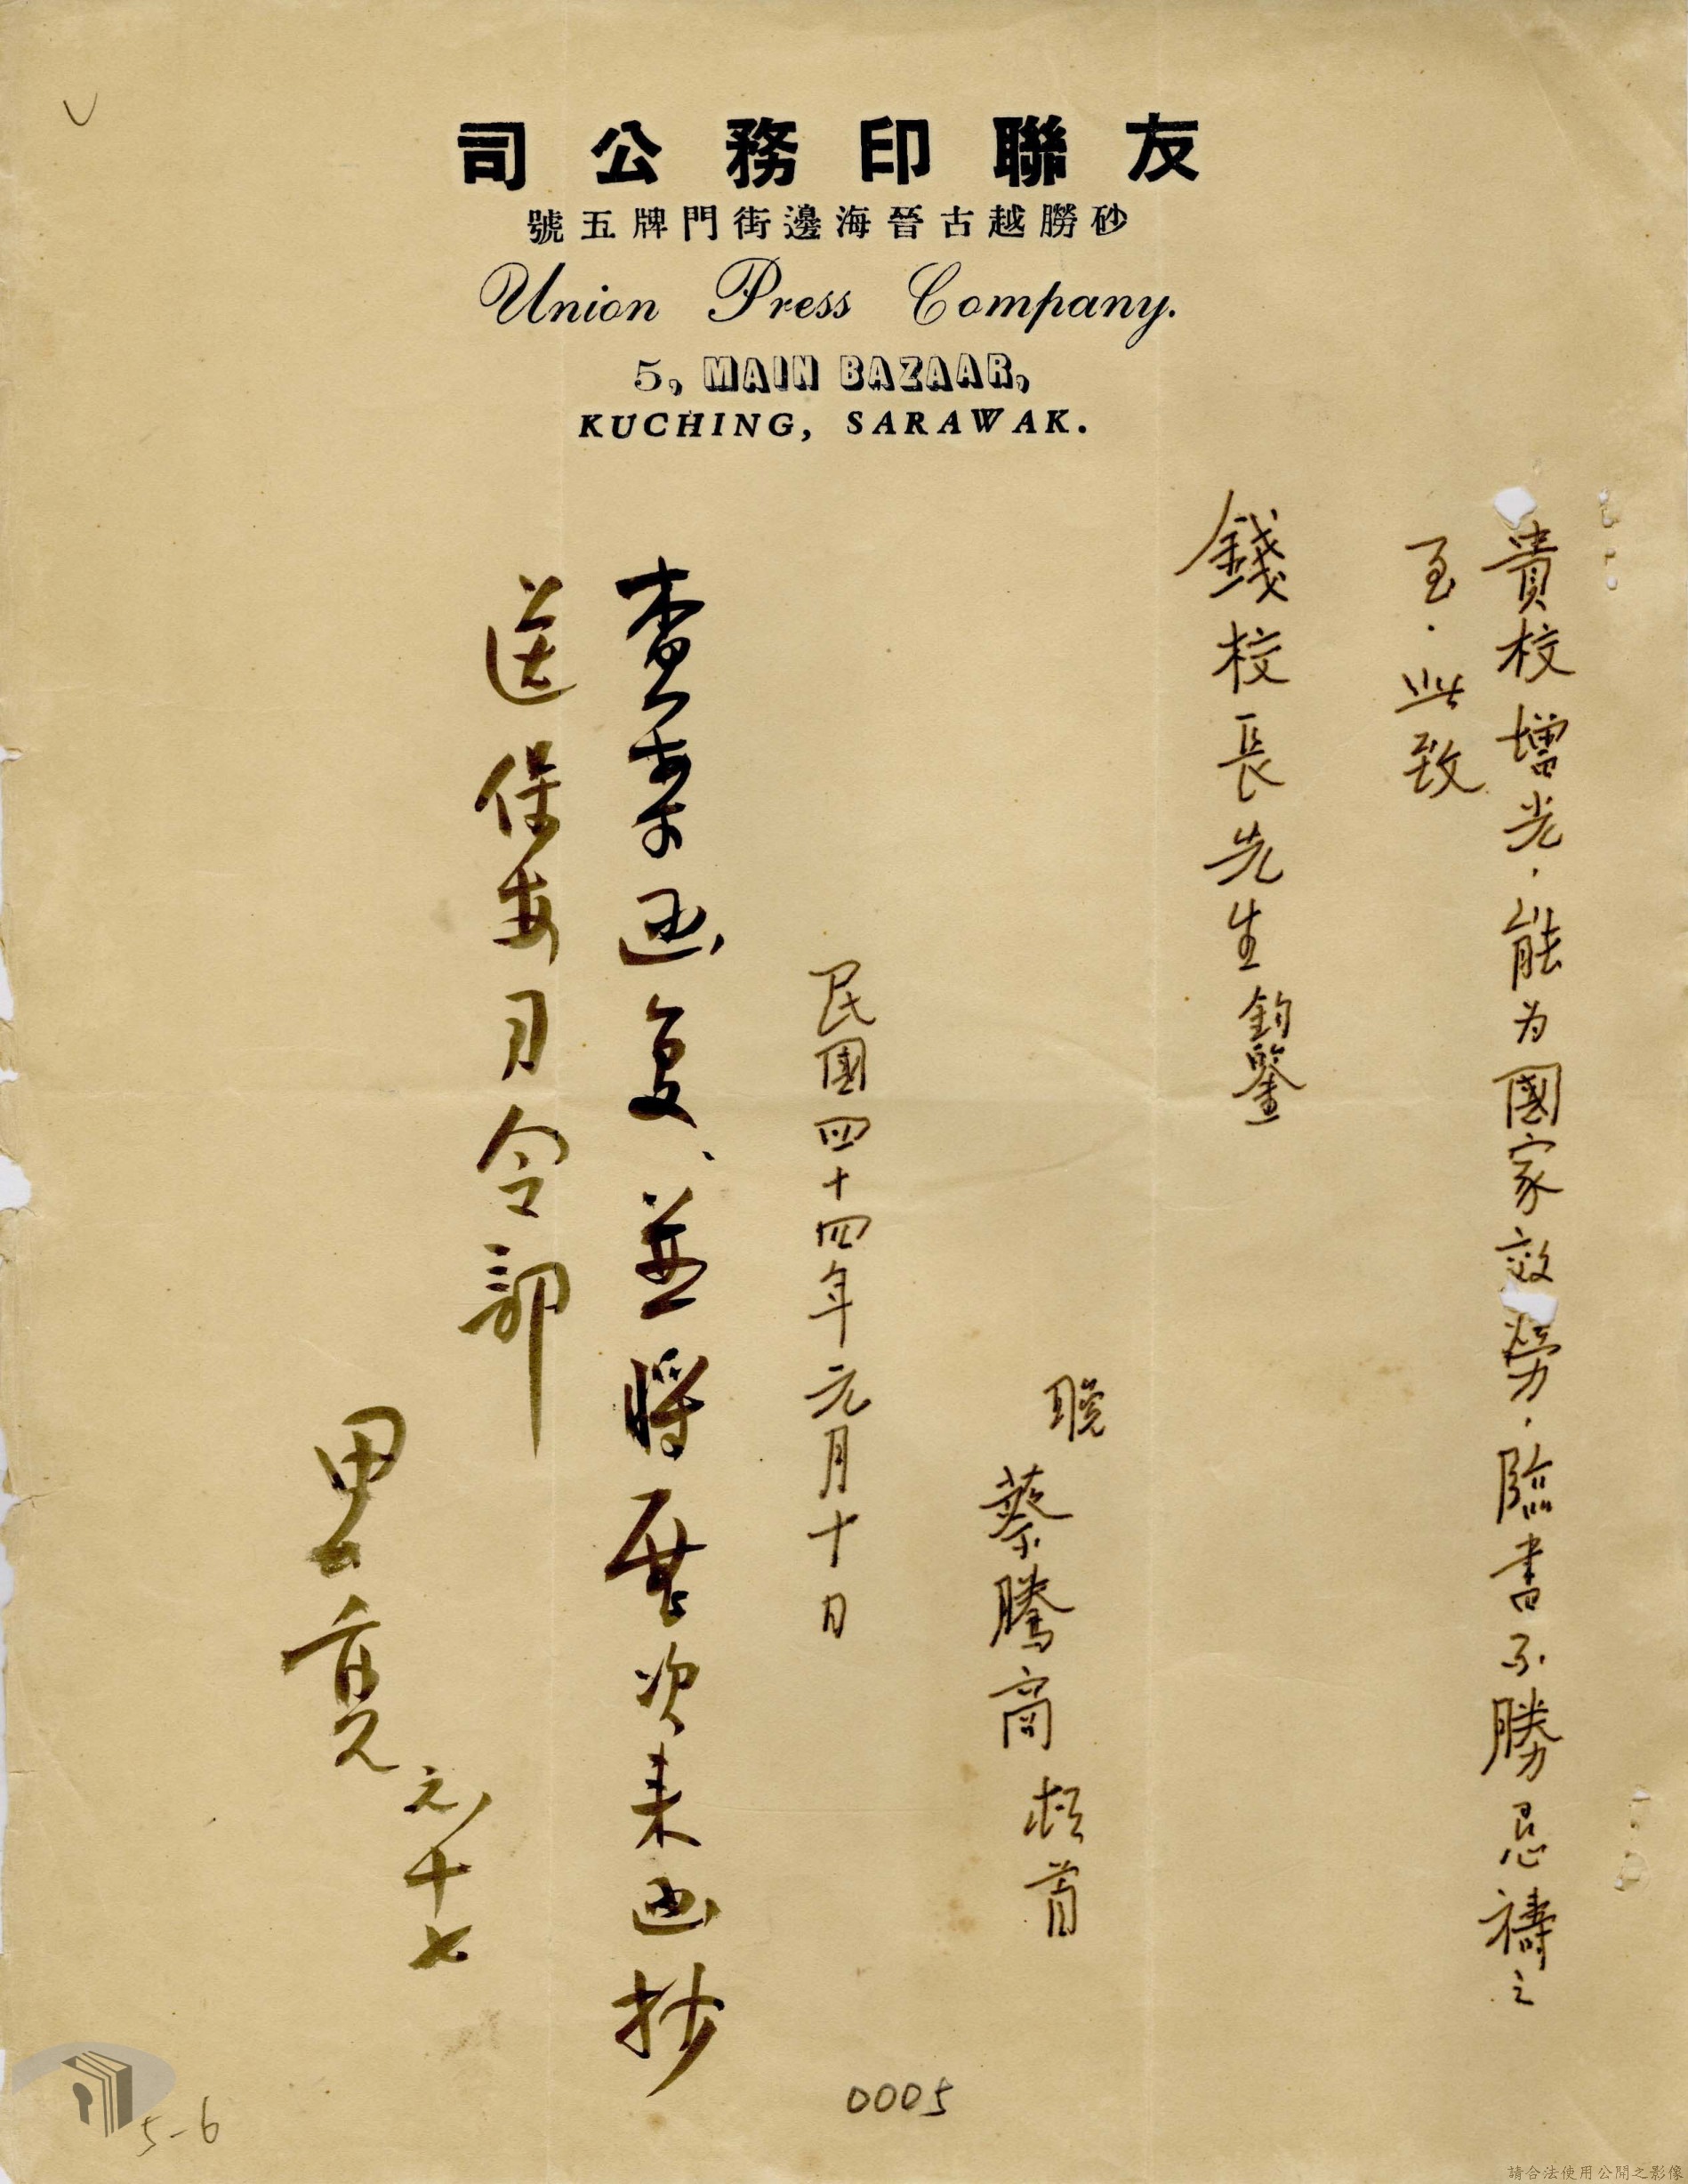 友聯印務公司
砂朥越古晉海邊街門牌五號
Union Press Company.
5, MAIN BAZAAR,
KUCHING, SARAWAK.
貴校增光．能为國家效勞．臨書不勝忌禱之
至．此致
錢校長先生鈞鑒
晚
蔡騰商頓首
民國四十四年元月十日
查案函复、並將歷次來函抄
送保安司令部
思亮
元、十七
0005
5-6
請合法使用公開之影像